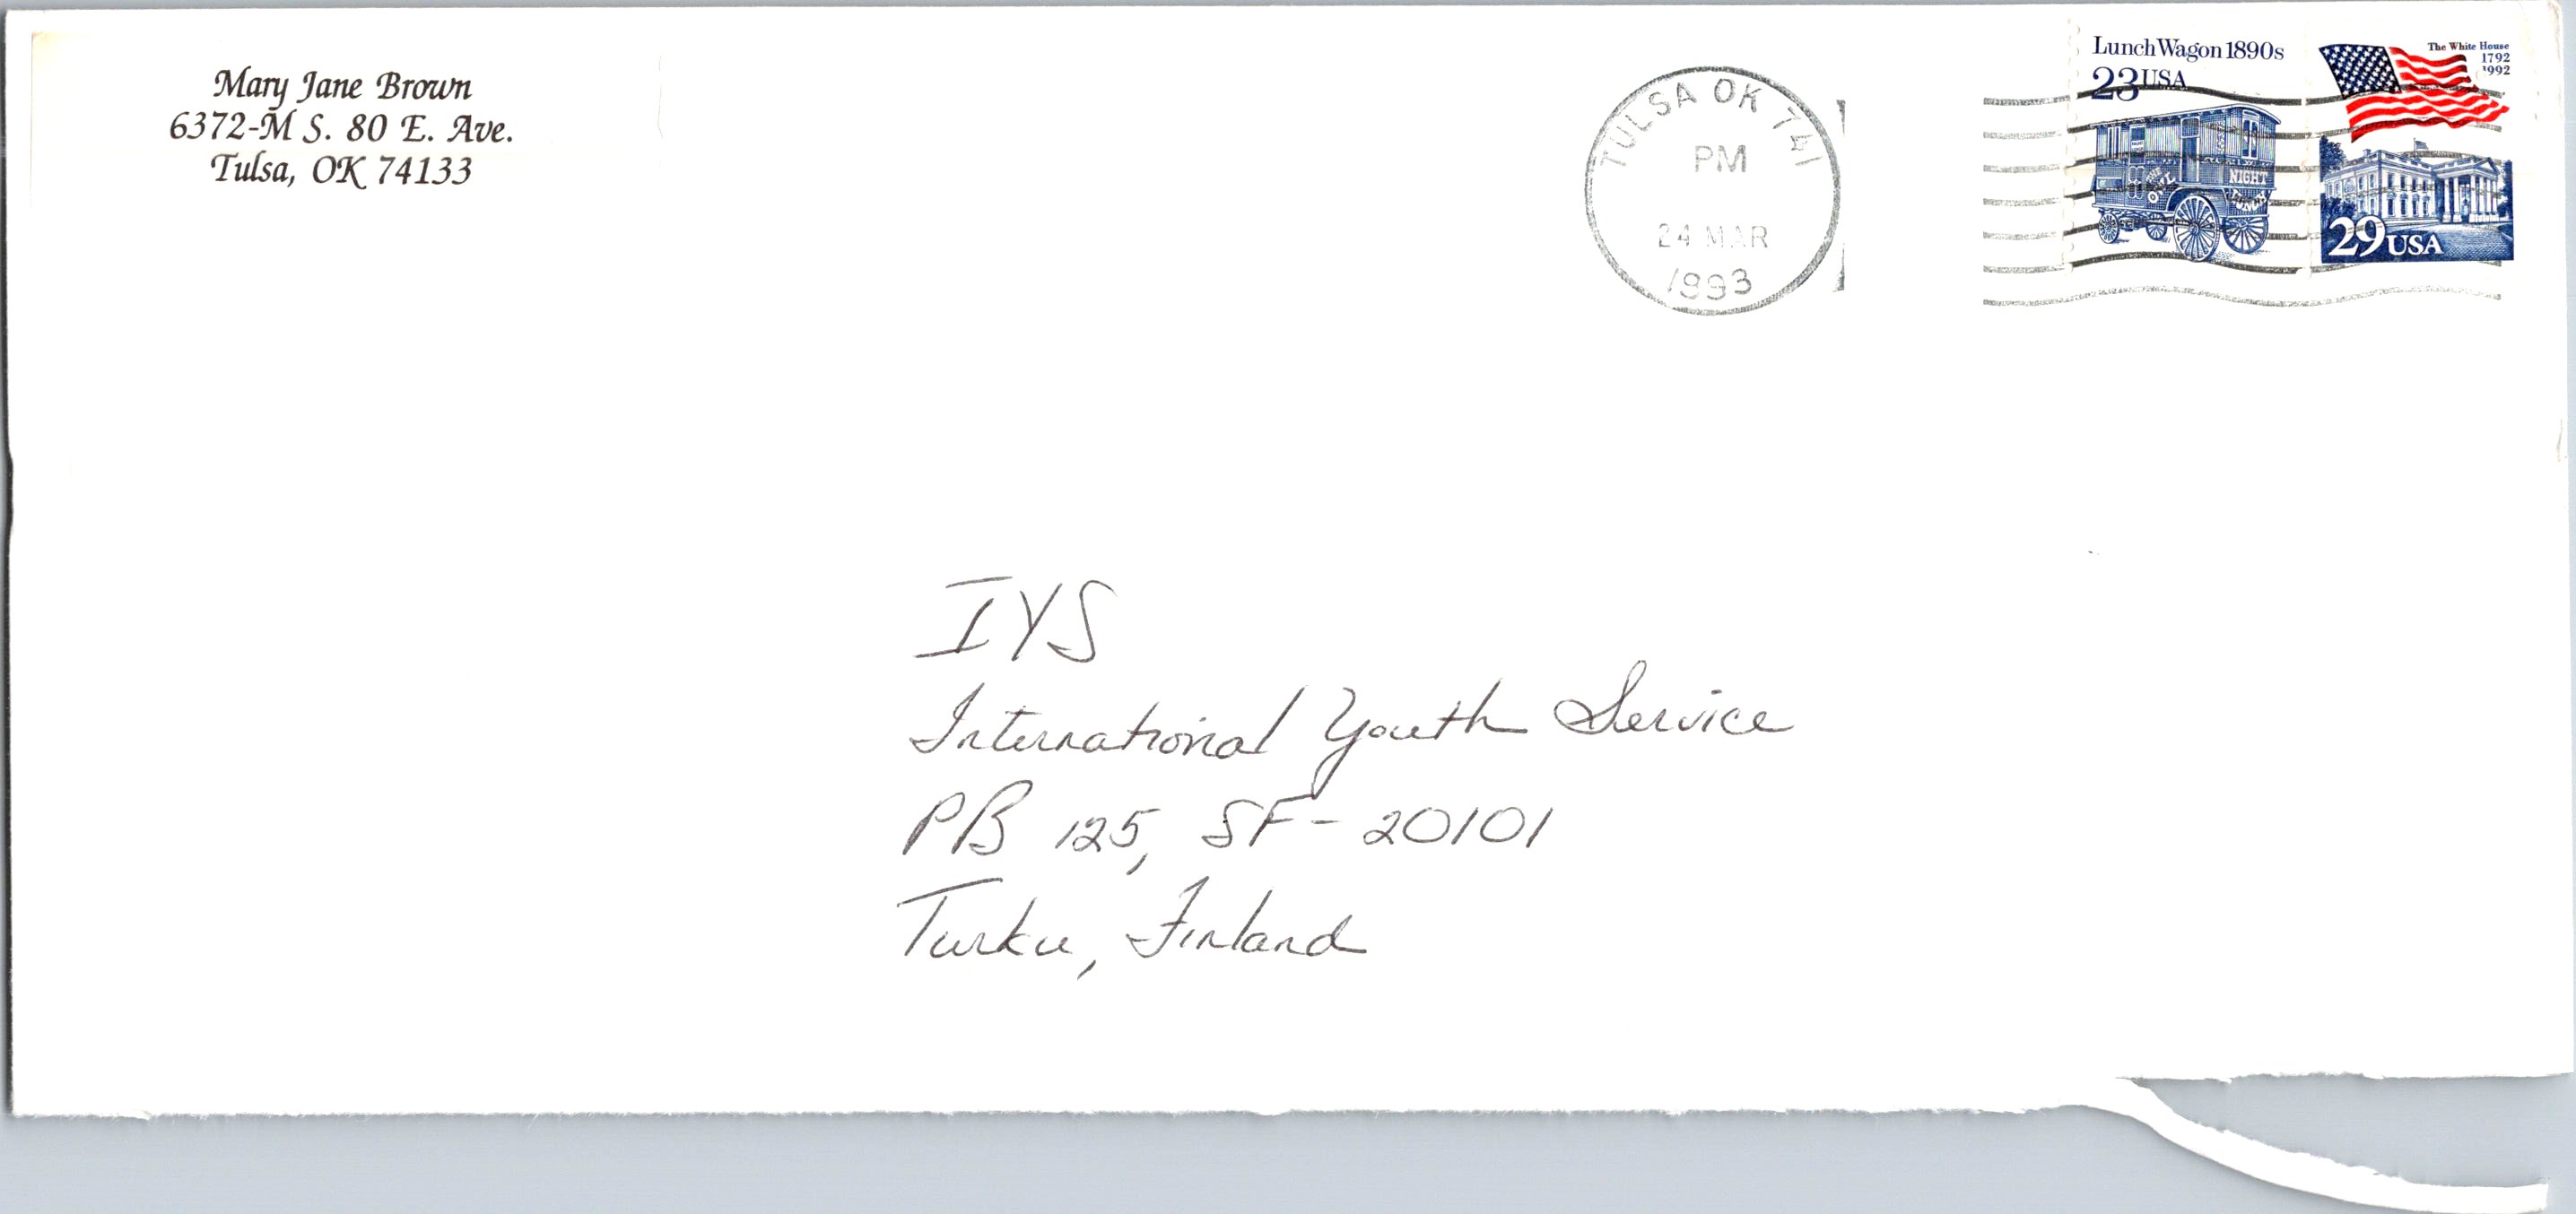 Mary Jane Brown
6372-M S. 80 E. Ave.
Tulsa, OK 74133
TULSA OK 741
PM
24 MAR
1993
Lunch Wagon 1890s
23 USA
NIGHT
OWL
The White House
1792
1992
29 USA
IYS
International Youth Service
PB 125, SF-20101
Turku, Finland